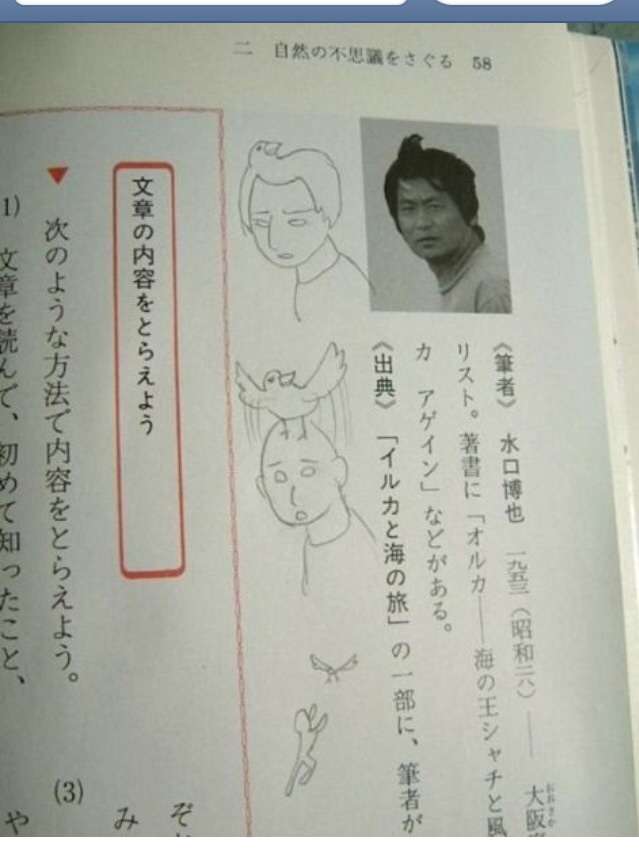 二　自然の不思議をさぐる　58
《筆者》　水口博也　一九五三（昭和二八）――　大阪
リスト。著書に「オルカ――海の王シャチと風
カ　アゲイン」などがある。
《出典》　「イルカと海の旅」の一部に、筆者が
文章の内容をとらえよう
▼　次のような方法で内容をとらえよう。
1)　文章を読んで、初めて知ったこと、
(3)
ぞ
み
や